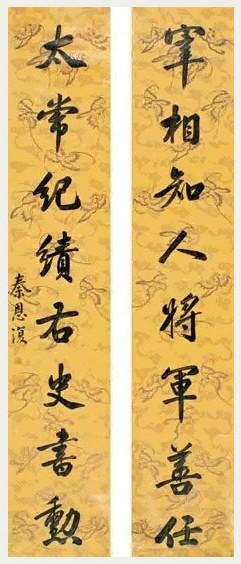 宰相知人将軍善任
太常纪績右史書勳
秦恩復